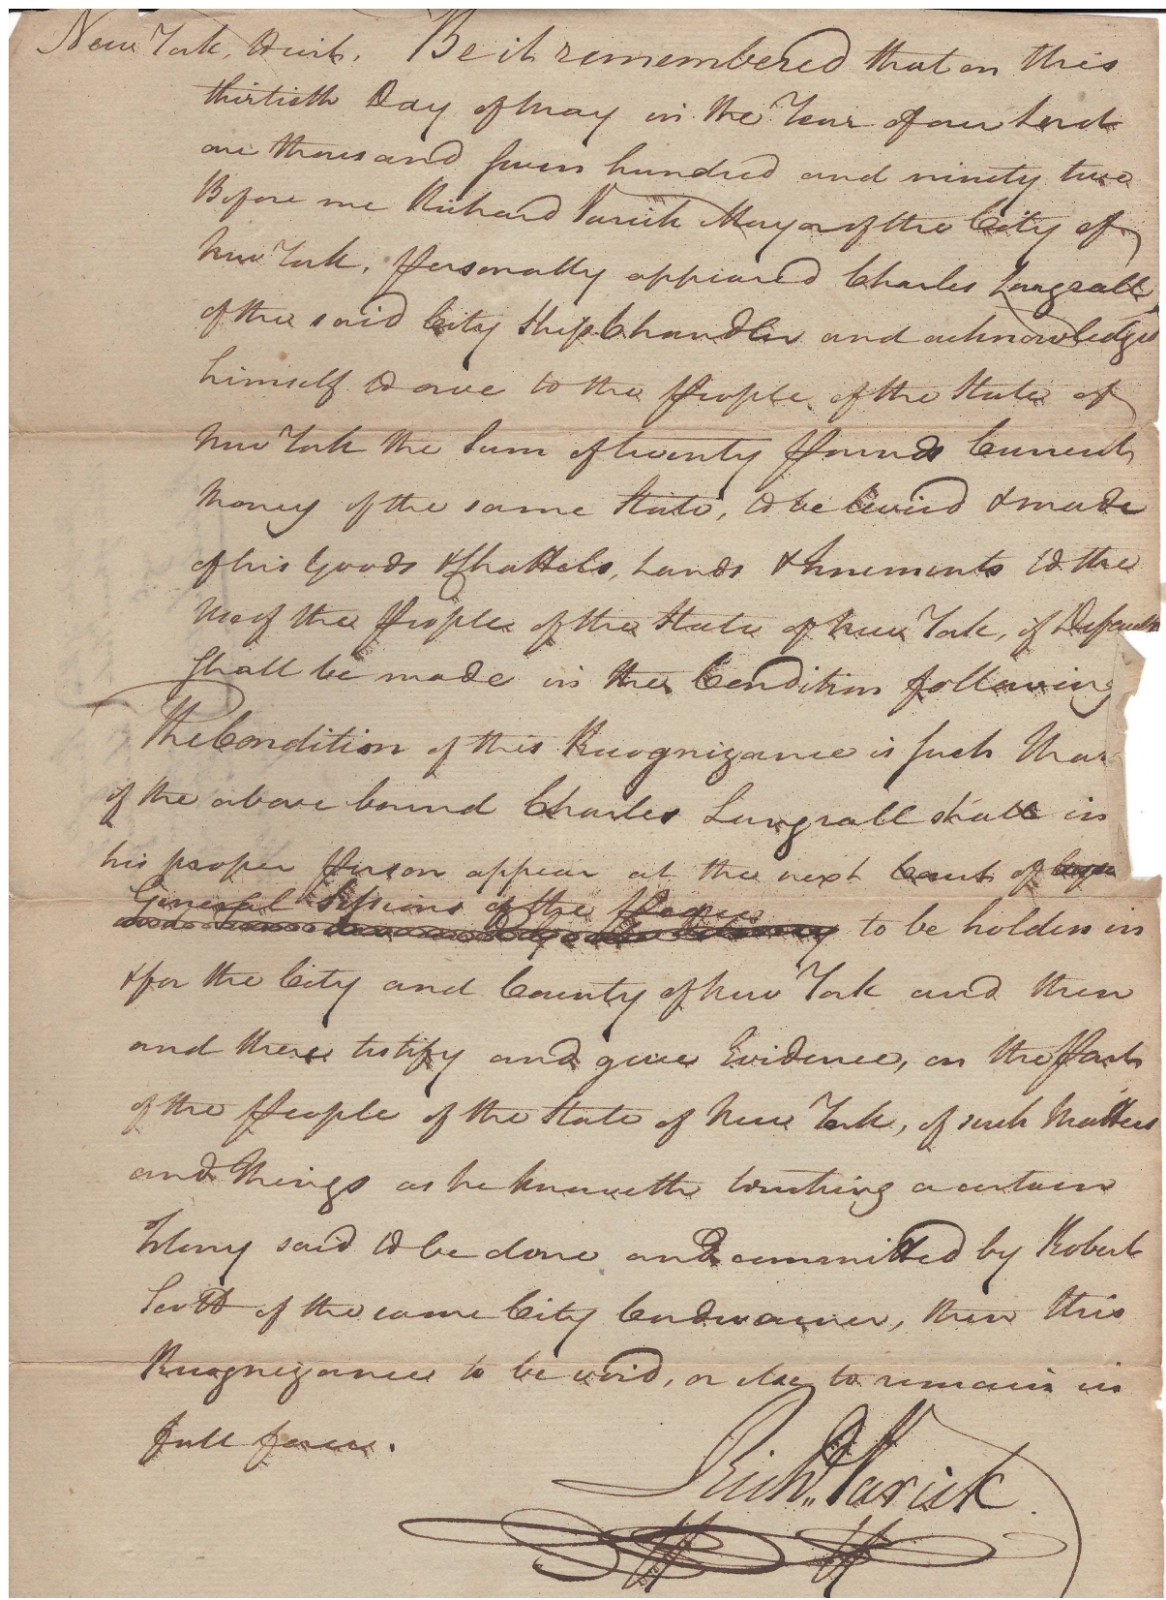 New York, to wit. Be it remembered that on this
thirtieth Day of May in the Year of our Lord
one thousand seven hundred and ninety two
Before me Richard Varick Mayor of the City of
New York, personally appeared Charles Lungrall
of the said City Ship Chandler and acknowledged
himself to owe to the People of the State of
New York the Sum of twenty Pounds Current
Money of the same State, to be levied & made
of his Goods & Chattels, Lands & Tenements to the
Use of the People of the State of New York, if Default
shall be made in the Condition following
The Condition of this Recognizance is such that
if the above bound Charles Lungrall shall in
his proper Person appear at the next Court of
General Sessions of the Peace
to be holden in
& for the City and County of New York and then
and there testify and give Evidence, on the Part
of the People of the State of New York, of such Matters
and Things as he knoweth touching a certain
Felony said to be done and committed by Robert
Scott of the same City Cordwainer, then this
Recognizance to be void, or else to remain in
full force.
Richd. Varick